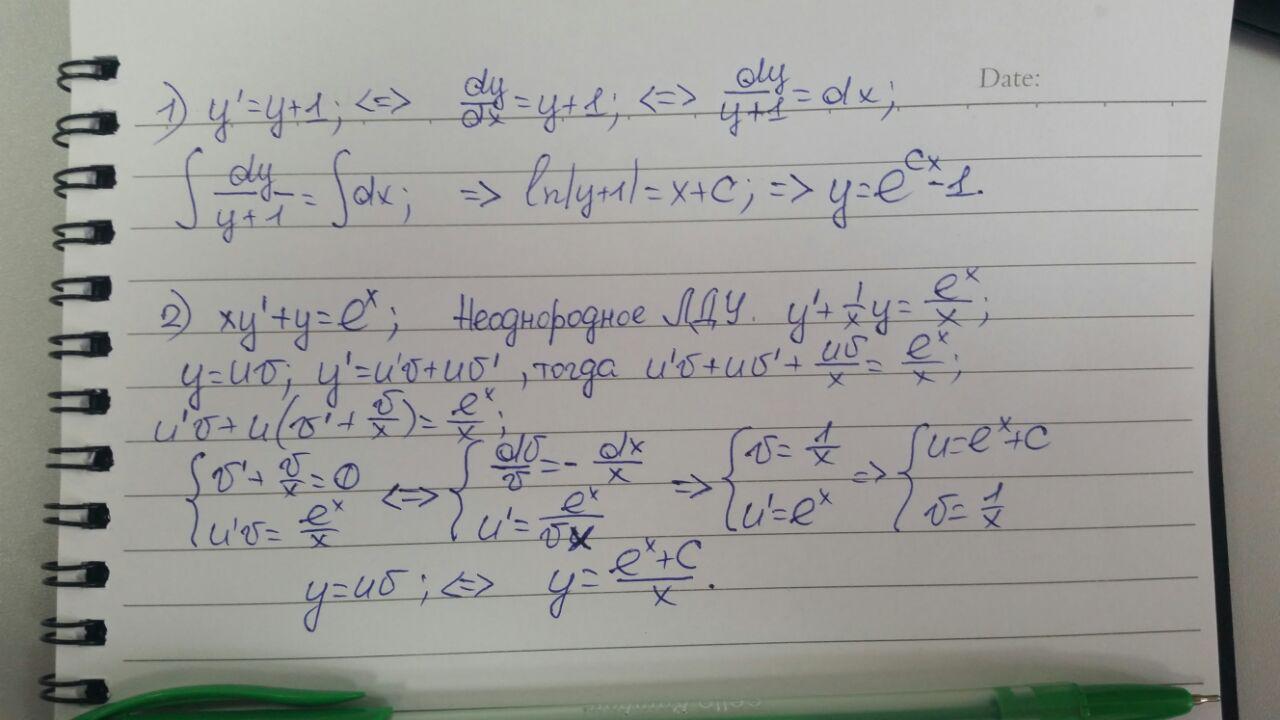 Date:
1) y'=y+1; <=> dy/dx=y+1; <=> dy/y+1=dx;
∫dy/y+1=∫dx; => ln|y+1|=x+C; => y=e^Cx-1.
2) xy'+y=e^x; Неоднородное ЛДУ. y'+1/x y=e^x/x;
y=uv; y'=u'v+uv', тогда u'v+uv'+uv/x=e^x/x;
u'v+u(v'+v/x)=e^x/x;
{v'+v/x=0 <=> {dv/v=-dx/x => {v=1/x => {u=e^x+C
u'v=e^x/x u'=e^x/vx u'=e^x v=1/x
y=uv; <=> y=e^x+C/x.